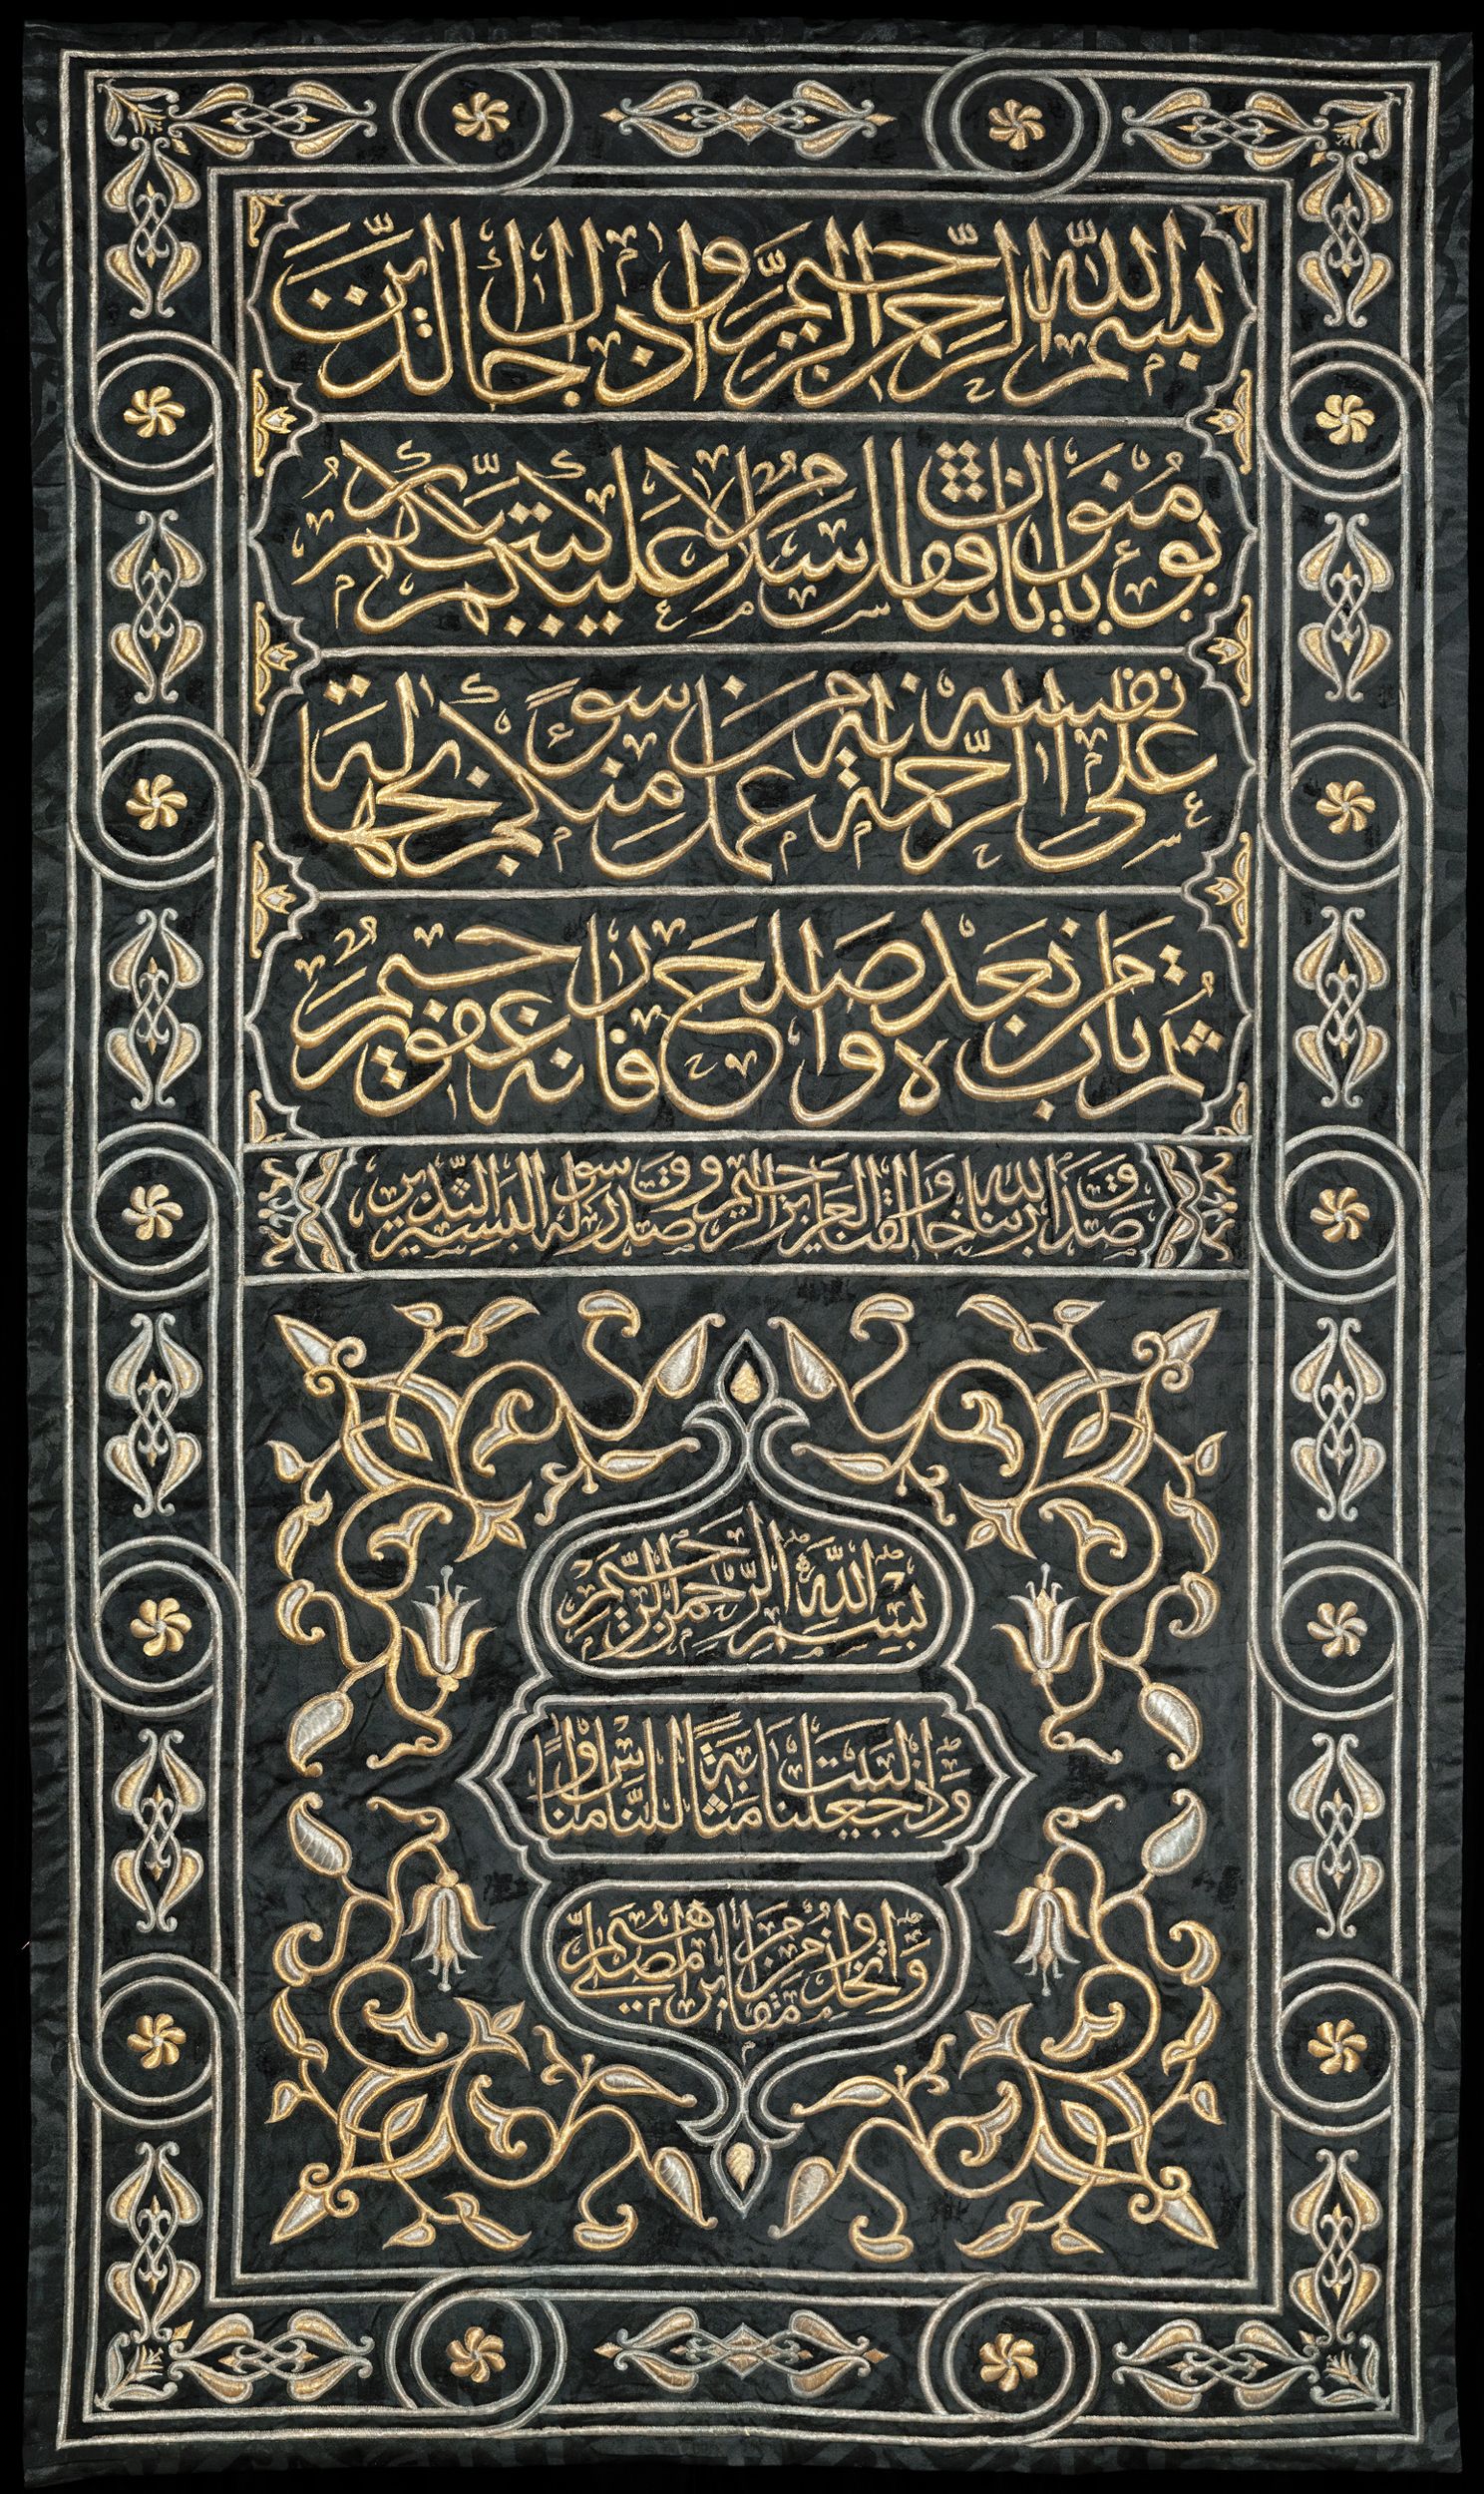 بسم الله الرحمن الرحيم وإذا جاءك الذين
يؤمنون بآياتنا فقل سلام عليكم كتب ربكم
على نفسه الرحمة أنه من عمل منكم سوءًا بجهالة
ثم تاب من بعده وأصلح فأنه غفور رحيم
صدق الله ربنا خالقنا العزيز الرحيم وصدق رسوله البشير النذير
بسم الله الرحمن الرحيم
وإذ جعلنا البيت مثابة للناس وأمنا
واتخذوا من مقام إبراهيم مصلى